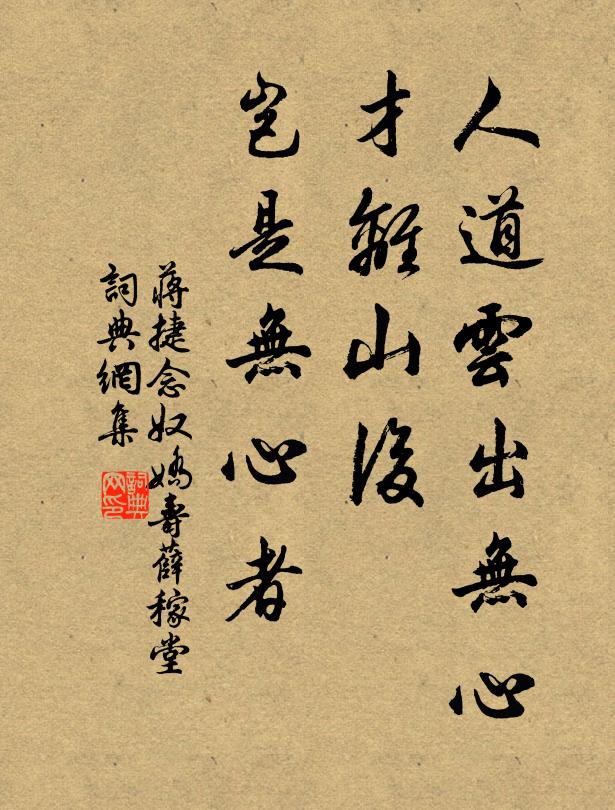 人道雲出無心
才離山後
豈是無心者
蔣捷念奴嬌壽薛稼堂
詞典網集
詞典
网印